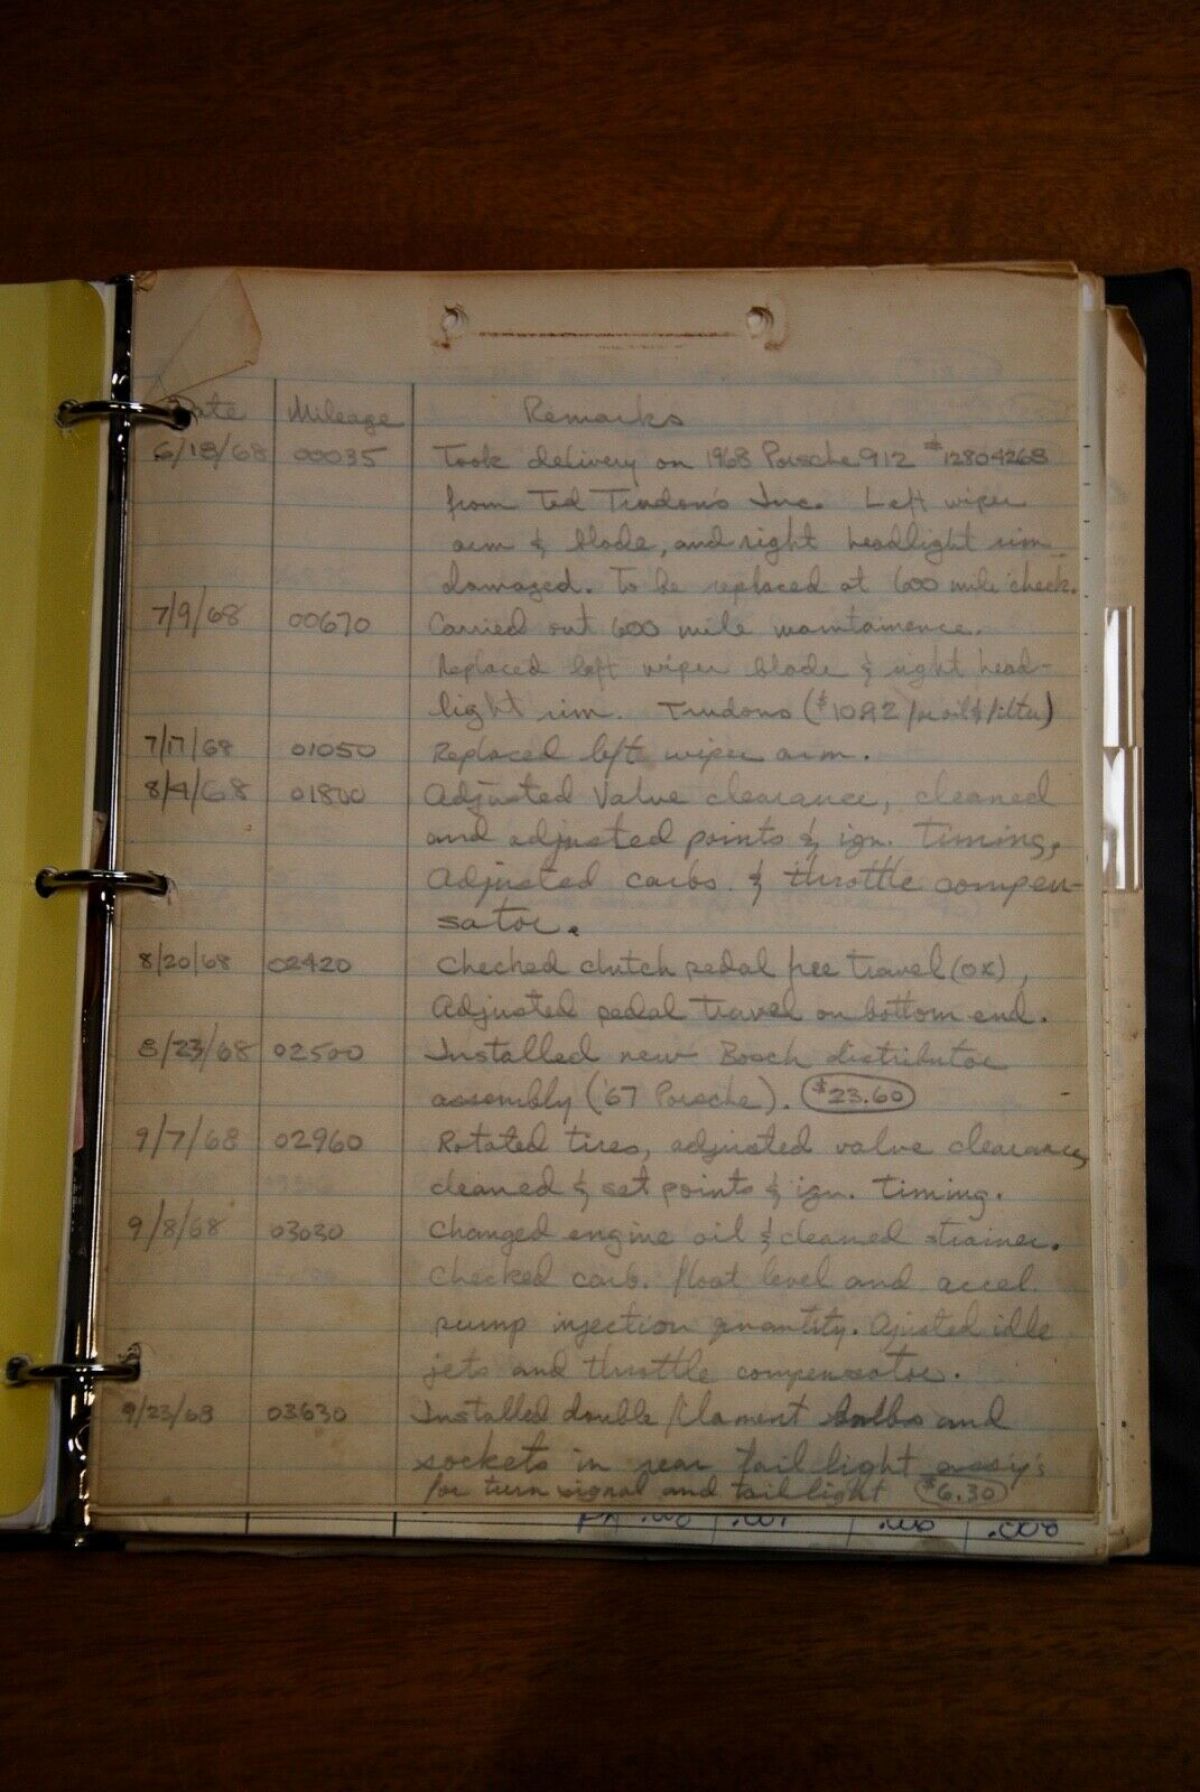 Date Mileage Remarks
6/18/68 00035 Took delivery on 1968 Porsche 912 #12804268
from Ted Trudons Inc. Left wiper
arm & blade, and right headlight rim
damaged. To be replaced at 600 mile check.
7/9/68 00670 Carried out 600 mile maintainence.
Replaced left wiper blade & right head-
light rim. Trudons ($10.92 for oil & filter)
7/17/68 01050 Replaced left wiper arm.
8/4/68 01800 Adjusted Valve clearance, cleaned
and adjusted points & ign. timing,
Adjusted carbs. & throttle compen-
sator.
8/20/68 02420 Checked clutch pedal free travel (OK),
Adjusted pedal travel on bottom end.
8/23/68 02500 Installed new Bosch distributor
assembly ('67 Porsche). $23.60
9/7/68 02960 Rotated tires, adjusted valve clearance,
cleaned & set points & ign. timing.
9/8/68 03030 Changed engine oil & cleaned strainer.
Checked carb. float level and accel.
pump injection quantity. Ajusted idle
jets and throttle compensator.
9/23/68 03630 Installed double filament bulbs and
sockets in rear tail light assy's
for turn signal and taillight $6.30
.006 .008